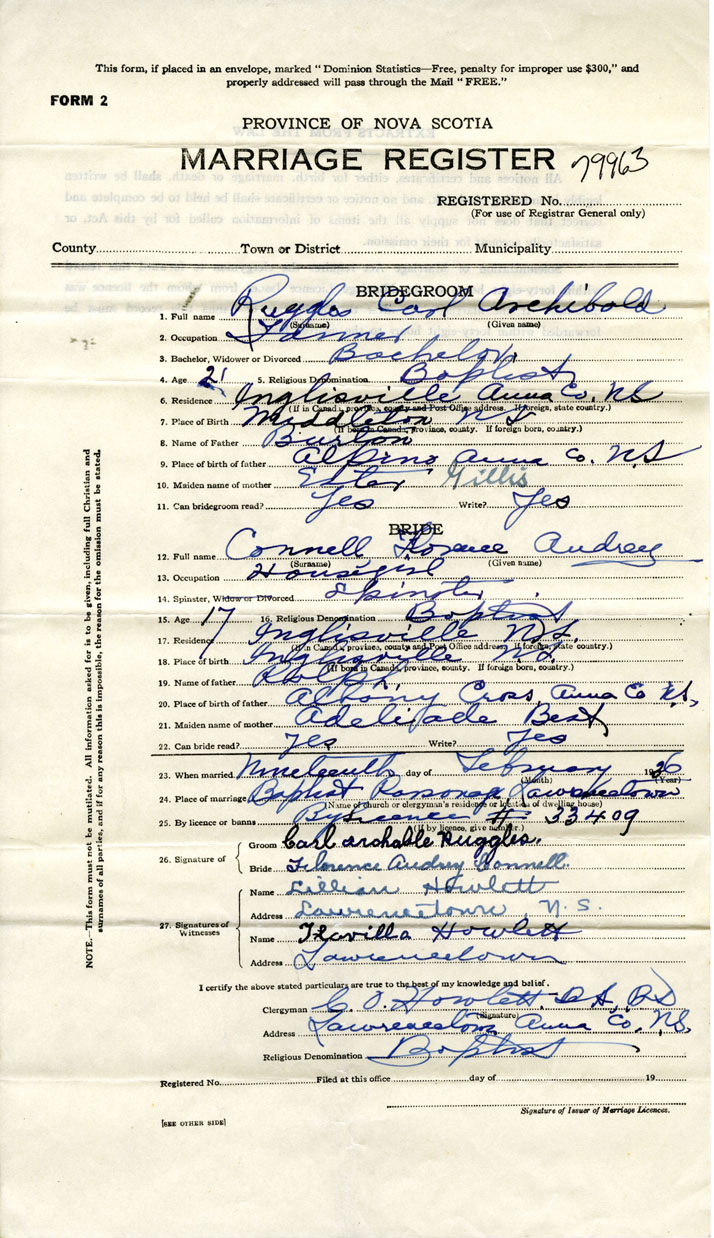 This form, if placed in an envelope, marked "Dominion Statistics—Free, penalty for improper use $300," and
properly addressed will pass through the Mail "FREE."
FORM 2
PROVINCE OF NOVA SCOTIA
MARRIAGE REGISTER 79963
REGISTERED No.
(For use of Registrar General only)
County Town or District Municipality
BRIDEGROOM
1. Full name Ruggles Carl Archibold
(Surname) (Given name)
2. Occupation Farmer
3. Bachelor, Widower or Divorced Bachelor
4. Age 21 5. Religious Denomination Baptist
6. Residence Inglisville Anna Co. NS
(If in Canada, province, county and Post Office address. If foreign, state country.)
7. Place of Birth Middleton N.S.
(If born in Canada, province, county. If foreign born, country.)
8. Name of Father Burton
9. Place of birth of father Anna Co. N.S
10. Maiden name of mother Gillis
11. Can bridegroom read? Yes Write? Yes
BRIDE
12. Full name Connell Florence Audrey
(Surname) (Given name)
13. Occupation Housegirl
14. Spinster, Widow or Divorced Spinster
15. Age 17 16. Religious Denomination Baptist
17. Residence Inglisville N.S.
(If in Canada, province, county and Post Office address. If foreign, state country.)
18. Place of birth Inglisville N.S.
(If born in Canada, province, county. If foreign born, country.)
19. Name of father
20. Place of birth of father Albany Cross Anna Co N.S,
21. Maiden name of mother Best
22. Can bride read? Yes Write? Yes
23. When married Nineteenth day of February 1936
(Month) (Year)
24. Place of marriage Baptist Parsonage Lawrencetown
(Name of church or clergyman's residence or location of dwelling house)
25. By licence or banns By Licence # 33409
(If by licence, give number.)
26. Signature of
Groom Carl archable Ruggles.
Bride Florence Audrey Connell.
27. Signatures of Witnesses
Name Lillian Howlett
Address Lawrencetown, N.S.
Name Howlett
Address Lawrencetown
I certify the above stated particulars are true to the best of my knowledge and belief.
Clergyman C. O. Howlett
(Signature)
Address Lawrencetown Anna Co, N.S.
Religious Denomination Baptist
Registered No. Filed at this office day of 19
Signature of Issuer of Marriage Licences.
[SEE OTHER SIDE]
NOTE.—This form must not be mutilated. All information asked for is to be given, including full Christian and
surnames of all parties, and if for any reason this is impossible, the reason for the omission must be stated.